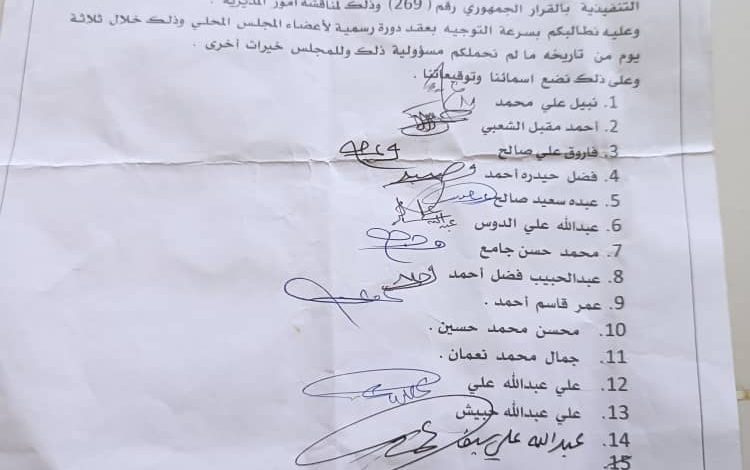 التنفيذية بالقرار الجمهوري رقم (269) وذلك لمناقشة أمور المديرية .
وعليه نطالبكم بسرعة التوجيه بعقد دورة رسمية لأعضاء المجلس المحلي وذلك خلال ثلاثة
يوم من تاريخه ما لم نحملكم مسؤولية ذلك وللمجلس خيرات أخرى .
وعلى ذلك نضع اسمائنا وتوقيعاتنا .
1. نبيل علي محمد
2. أحمد مقبل الشعبي
3. فاروق علي صالح
4. فضل حيدره أحمد
5. عبده سعيد صالح
6. عبدالله علي الدوس
7. محمد حسن جامع
8. عبدالحبيب فضل أحمد
9. عمر قاسم أحمد .
10. محسن محمد حسين .
11. جمال محمد نعمان .
12. علي عبدالله علي
13. علي عبدالله حبيش
14. عبدالله علي سيف
15